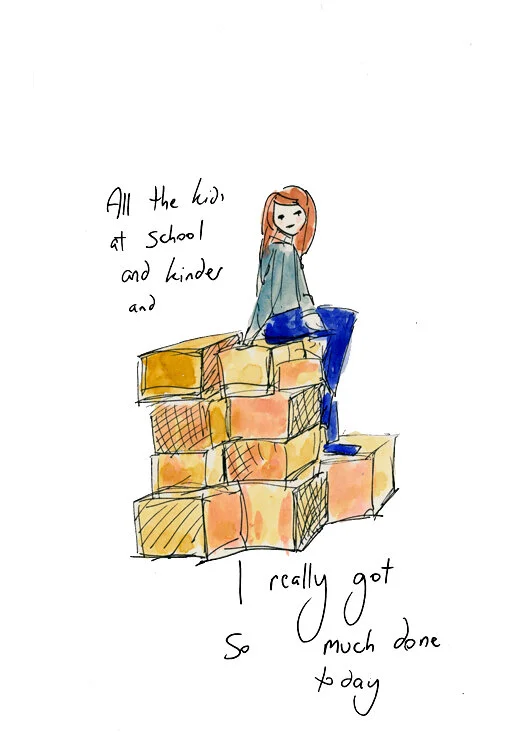 All the kids
at school
and kinder
and
I really got
so much done
today